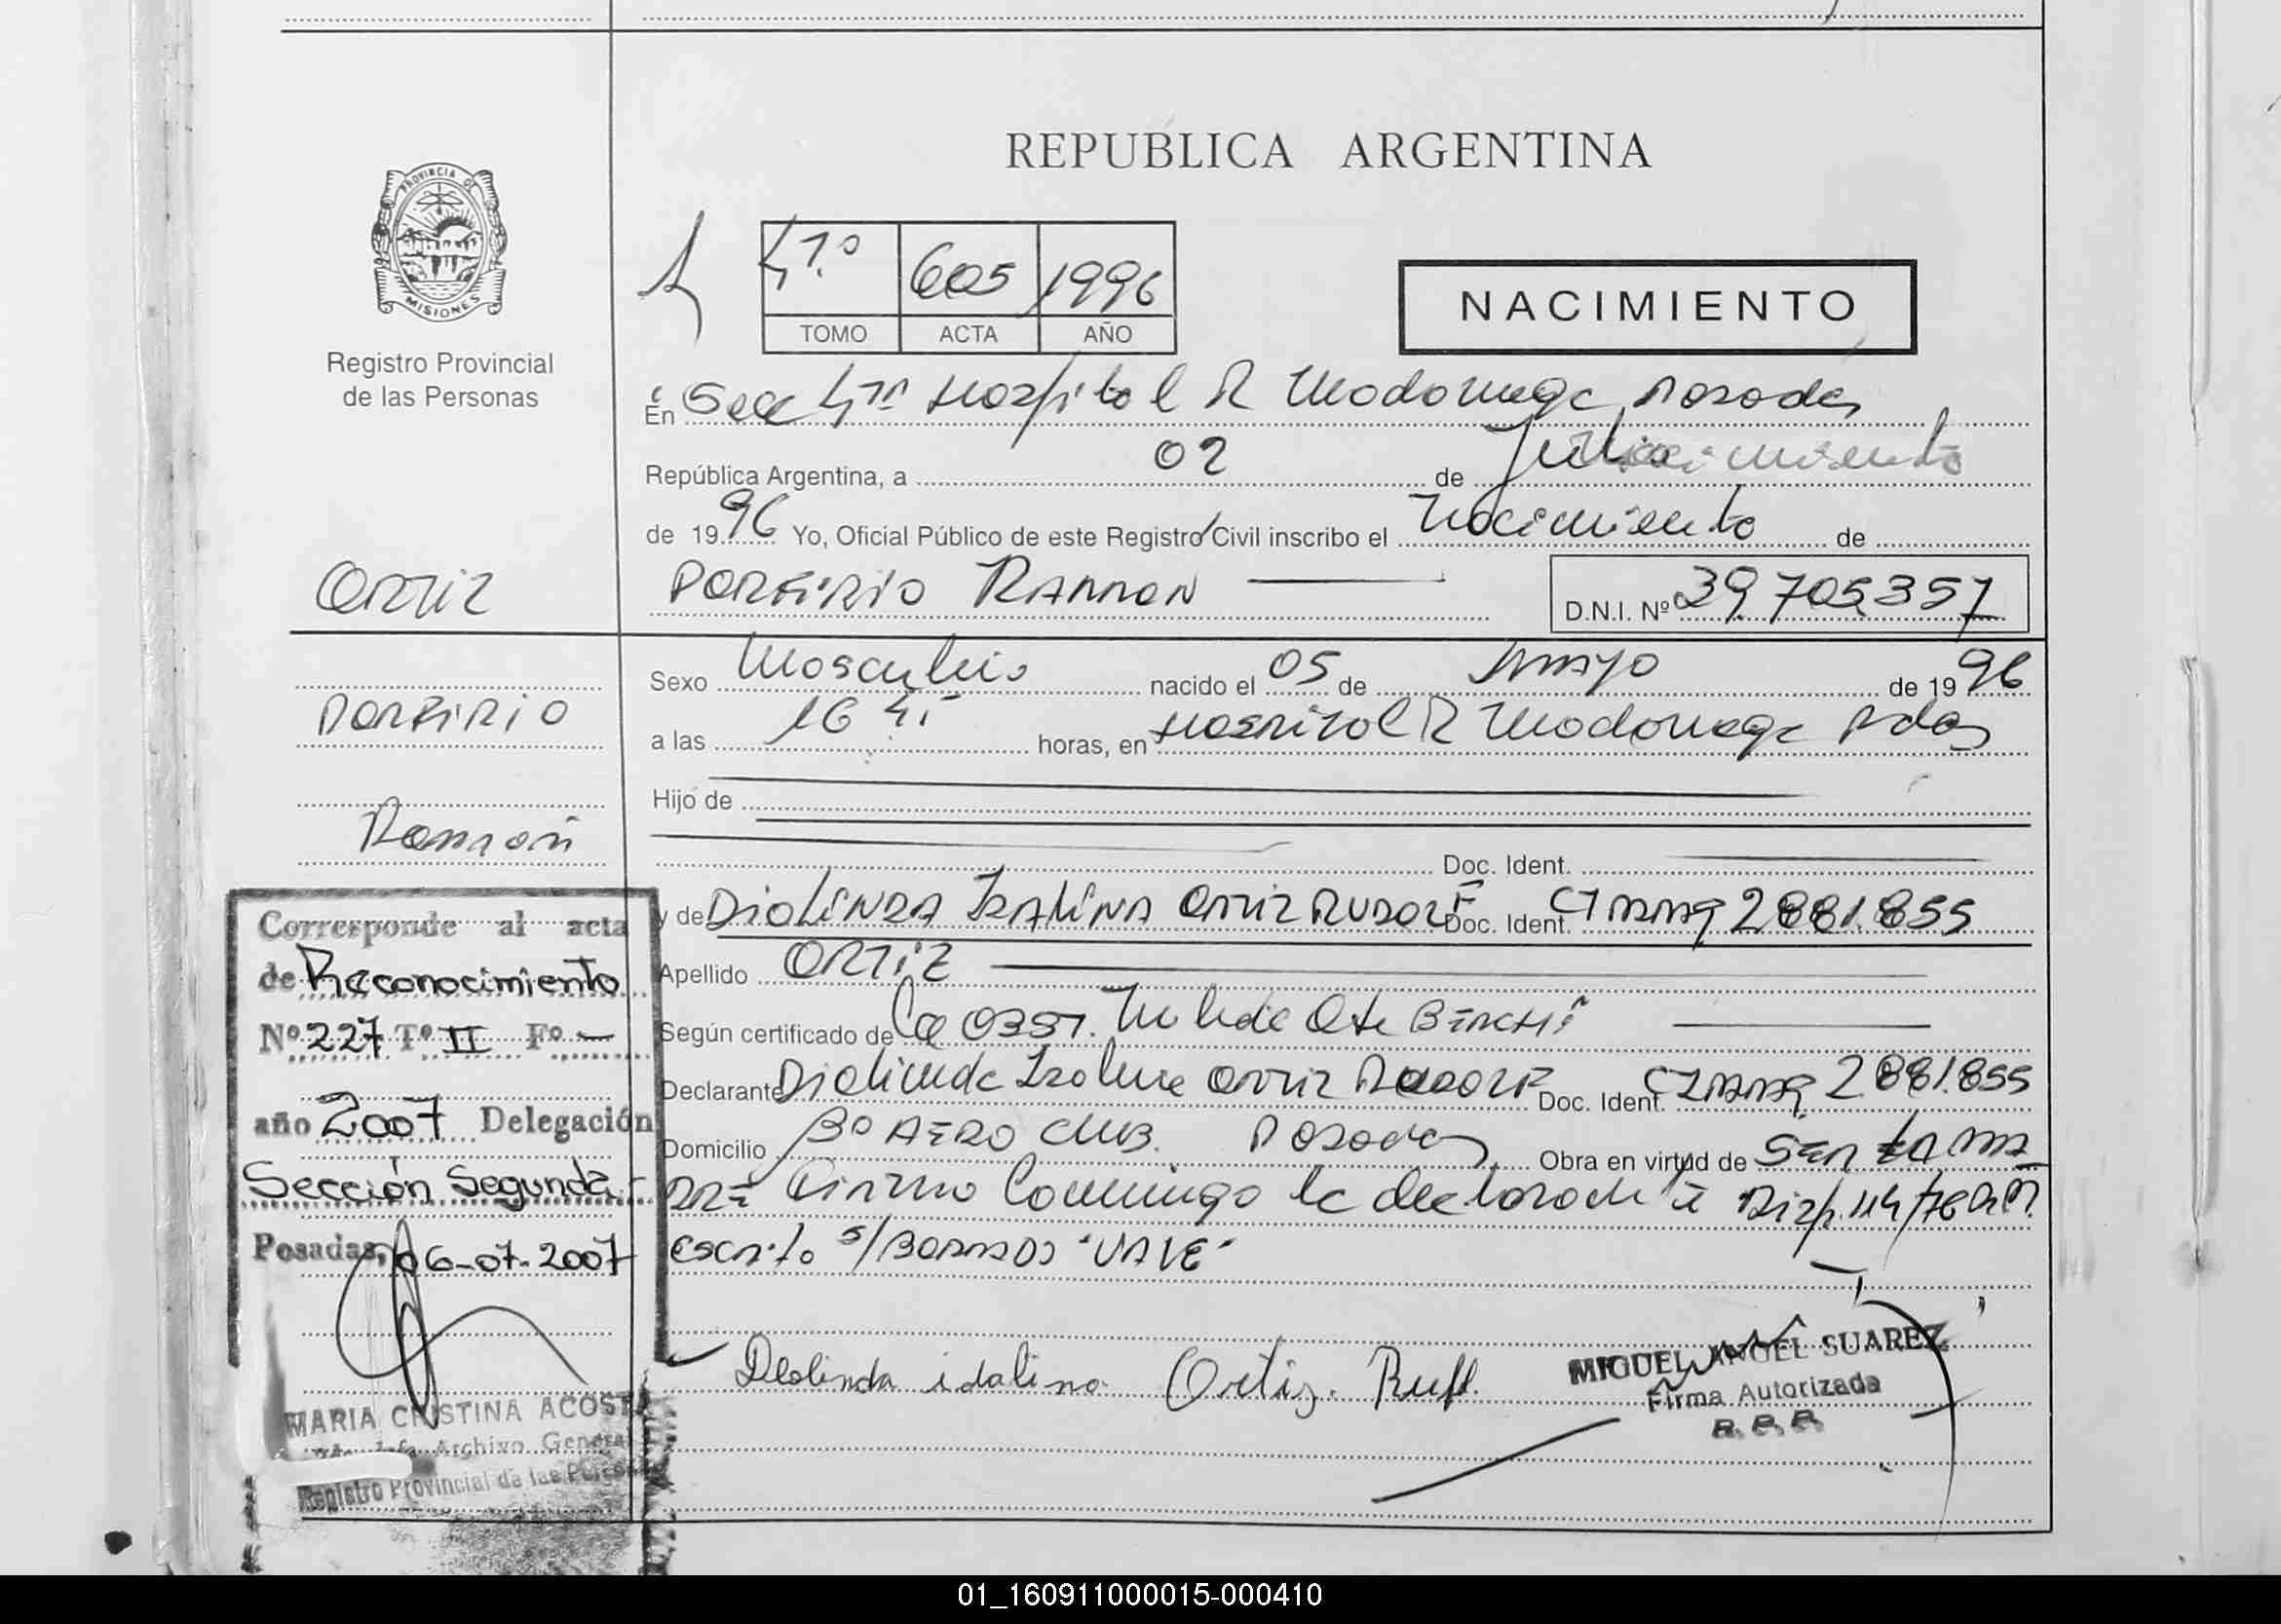 REPUBLICA ARGENTINA
PROVINCIA DE
MISIONES
Registro Provincial
de las Personas
4º 605 1996
TOMO ACTA AÑO
NACIMIENTO
En Secc 4ta Hospital R Madariaga Posadas
República Argentina, a 02 de Julio
de 1996 Yo, Oficial Público de este Registro Civil inscribo el Nacimiento de
Ortiz
PORFIRIO RAMON
D.N.I. Nº 39.705.357
Sexo Masculino nacido el 05 de mayo de 1996
Porfirio
a las 16 45 horas, en Hospital R Madariaga Pdas
Hijo de
Ramón
Doc. Ident.
y de Diolinda Isalina Ortiz Rudorf Doc. Ident. 2881.855
Apellido ORTIZ
Según certificado de La Obst.
Declarante Diolinda Isalina Ortiz Rudorf Doc. Ident. 2881.855
Domicilio Bº AERO CLUB. Posadas Obra en virtud de ser la ma
dre
escrito s/Borrado "VALE"
Corresponde al acta
de Reconocimiento
Nº 227 Tº II Fº —
año 2007 Delegación
Sección Segunda
Posadas, 06-07-2007
Deolinda idalina Ortiz. Ruff.
MIGUEL ANGEL SUAREZ
Firma Autorizada
R. P. P.
MARIA CRISTINA ACOSTA
Archivo General
Registro Provincial de las Personas
01_160911000015-000410